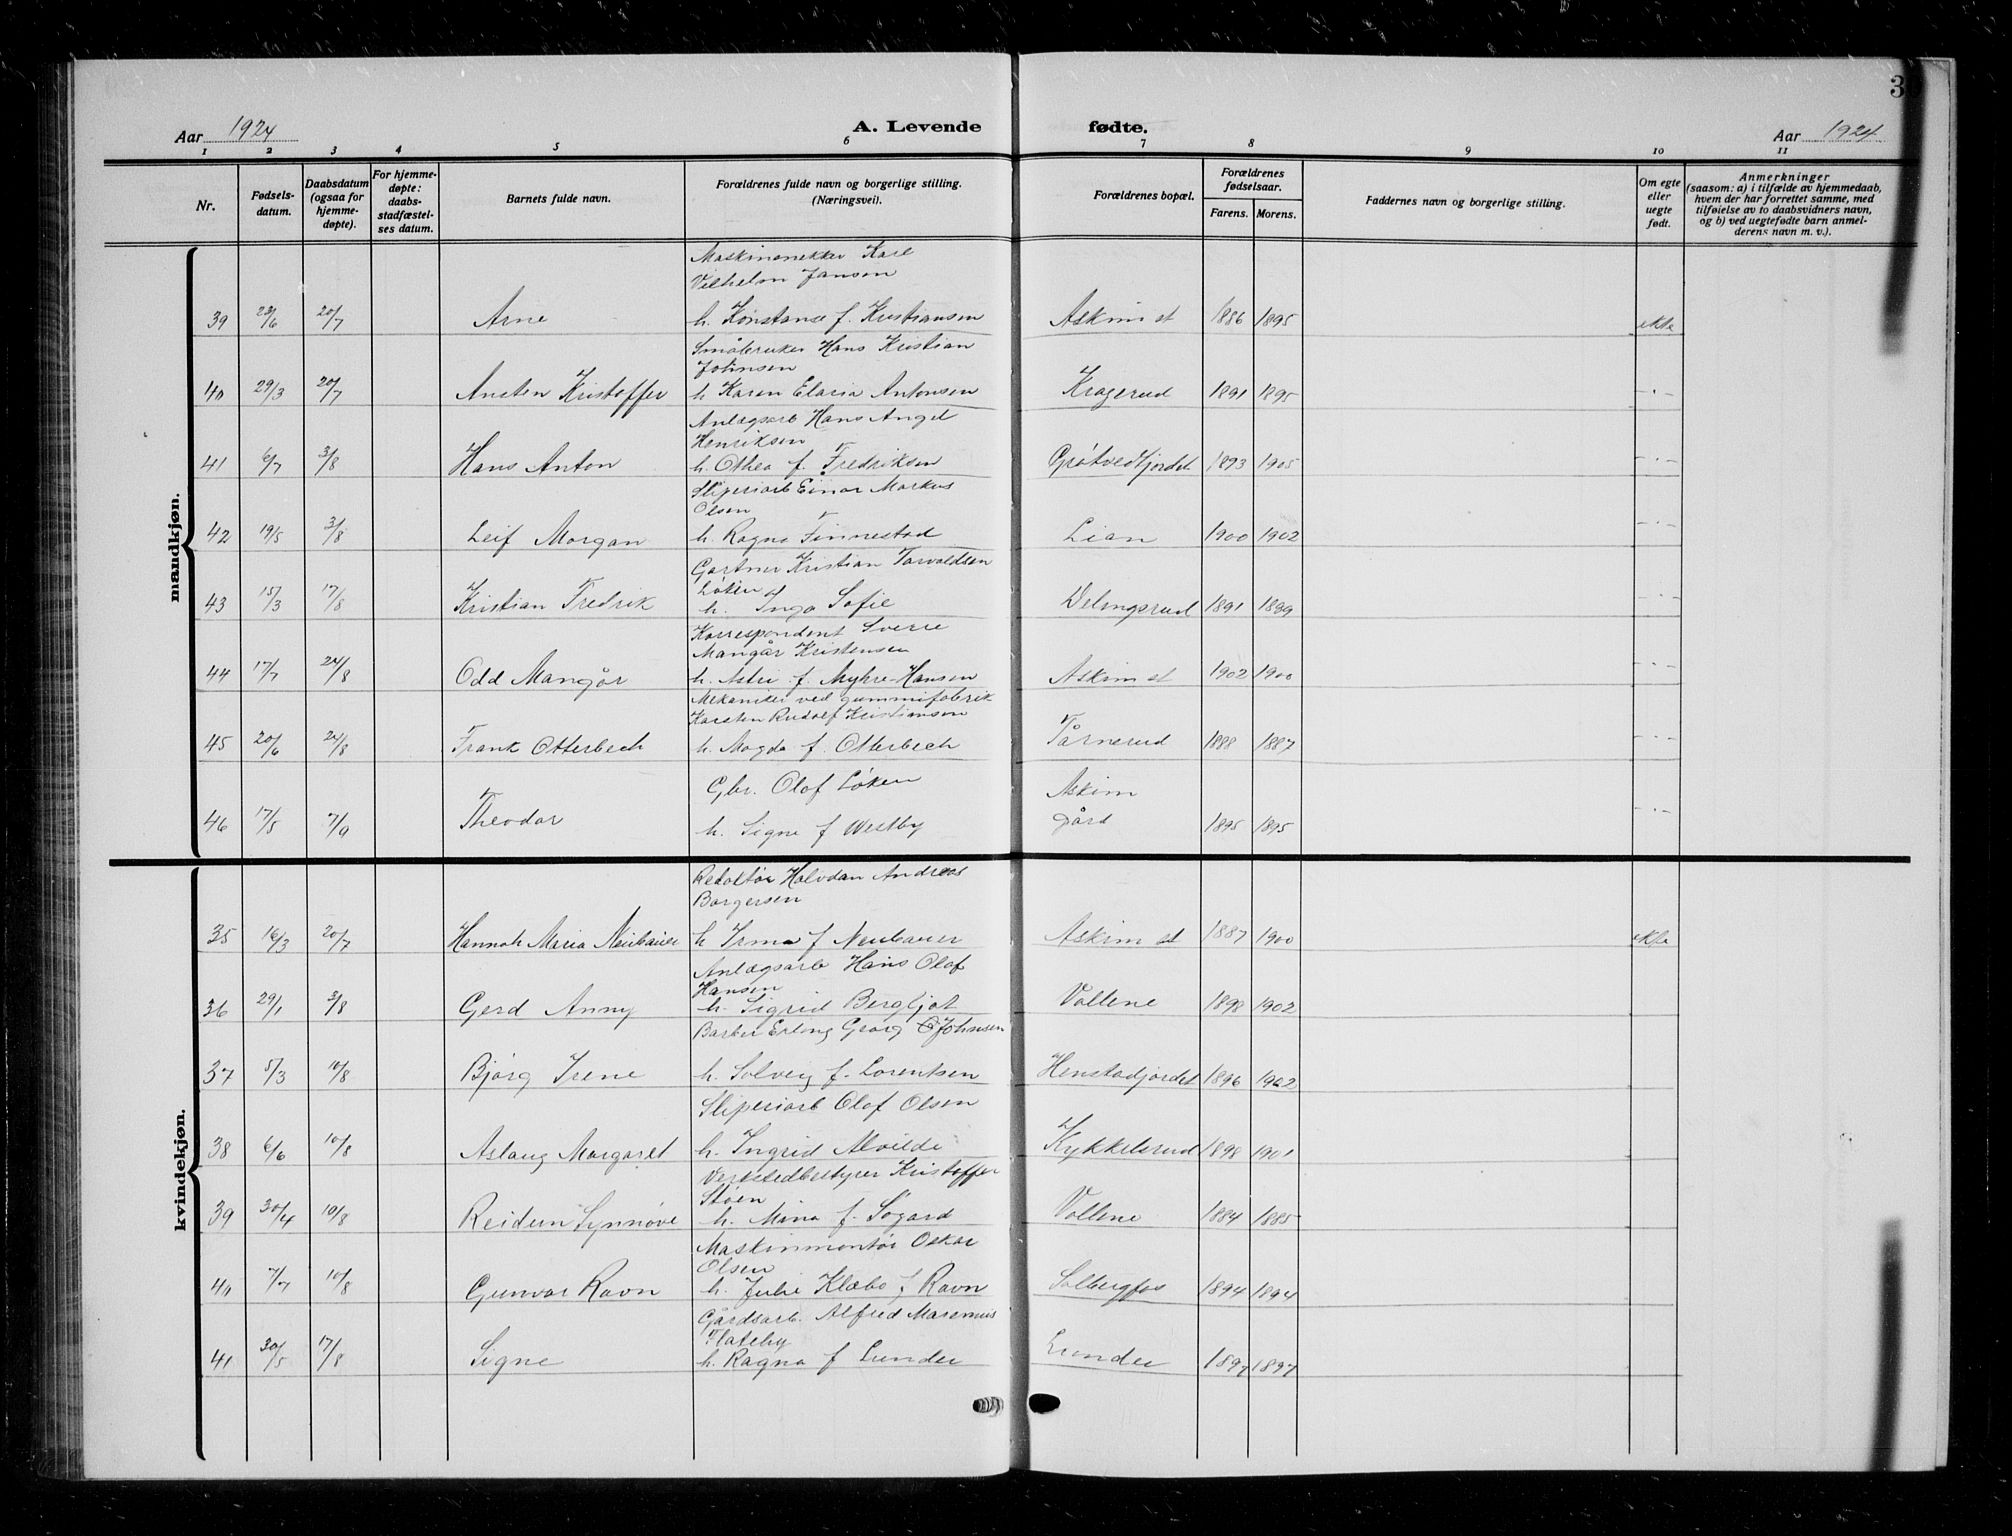 3
Aar 1924
A. Levende fødte.
Aar 1924
1 2 3 4 5 6 7 8 9 10 11
Nr.
Fødsels-
datum.
Daabsdatum
(ogsaa for
hjemme-
døpte).
For hjemme-
døpte:
daabs-
stadfæstel-
ses datum.
Barnets fulde navn.
Forældrenes fulde navn og borgerlige stilling.
(Næringsvei).
Forældrenes bopæl.
Forældrenes
fødselsaar.
Farens. Morens.
Faddernes navn og borgerlige stilling.
Om egte
eller
uegte
født.
Anmerkninger
(saasom: a) i tilfælde av hjemmedaab,
hvem der har forrettet samme, med
tilføielse av to daabsvidners navn,
og b) ved uegtefødte barn anmel-
derens navn m. v.).
mandkjøn.
Karl
Vilhelm Jansen
39 23/6 20/7 Arne h. Konstanse f. Kristiansen Askim st 1886 1895 ekte
Småbruker Hans Kristian
Johnsen
40 29/3 20/7 Ansten Kristoffer h Karen Elaria Antonsen Kragerud 1891 1895 - " -
Anlægsarb Hans Angel
Henriksen
41 6/7 3/8 Hans Anton h. Othea f. Fredriksen Grøtvedtjordet 1893 1905 - " -
Sliperiarb Einar Markus
Olsen
42 19/5 3/8 Leif Morgan h. Ragna Finnestad Lian 1900 1902 - " -
Gartner Kristian Torvaldsen
Løken
43 15/3 17/8 Kristian Fredrik h. Inga Sofie Delingsrud 1891 1899 - " -
Korrespondent Sverre
Mangår Kristensen
44 17/7 24/8 Odd Mangår h. Astri f. Myhre-Hansen Askim st 1902 1900 - " -
Mekaniker ved gummifabrik
Karsten Rudolf Kristiansen
45 20/6 24/8 Frank Otterbech h. Magda f. Otterbech Tårnerud 1888 1887 - " -
Gbr. Olaf Løken Askim
46 17/5 7/9 Theodor h. Signe f Westby gård 1895 1895 - " -
kvindekjøn.
Redaktør Halvdan Andreas
Borgersen
35 16/3 20/7 Hannah Maria Neubauer h Irma f Neubauer Askim st 1887 1900 ekte
Anlægsarb Hans Olaf
Hansen
36 29/1 3/8 Gerd Anny h. Sigrid Bergljot Vollene 1898 1902
Barber Erling Georg Johnsen
37 5/3 10/8 Bjørg Irene h. Solveig f. Lorentsen Henstadjordet 1896 1902
Sliperiarb Olaf Olsen
38 6/6 10/8 Aslaug Margaret h. Ingrid Alvilde Kykkelsrud 1898 1901
Verkstedbestyrer Kristoffer
Støen
39 30/4 10/8 Reidun Synnøve h. Mina f. Søgard Vollene 1884 1885
Maskinmontør Oskar
Olsen
40 7/7 10/8 Gunvor Ravn h. Julie Klæbo f Ravn Solbergfos 1894 1894
Gårdsarb. Alfred Marenius
Flateby
41 30/5 17/8 Signe h. Ragna f Lunder Lunder 1897 1897